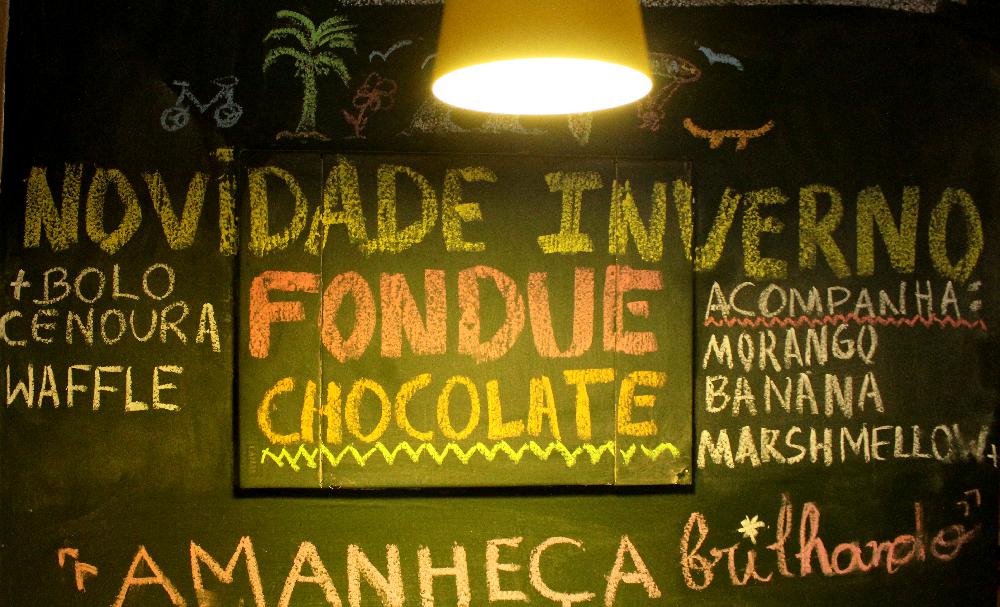 NOVIDADE INVERNO
FONDUE
CHOCOLATE
+BOLO
CENOURA
WAFFLE
ACOMPANHA:
MORANGO
BANANA
MARSHMELLOW+
"AMANHEÇA brilhando"